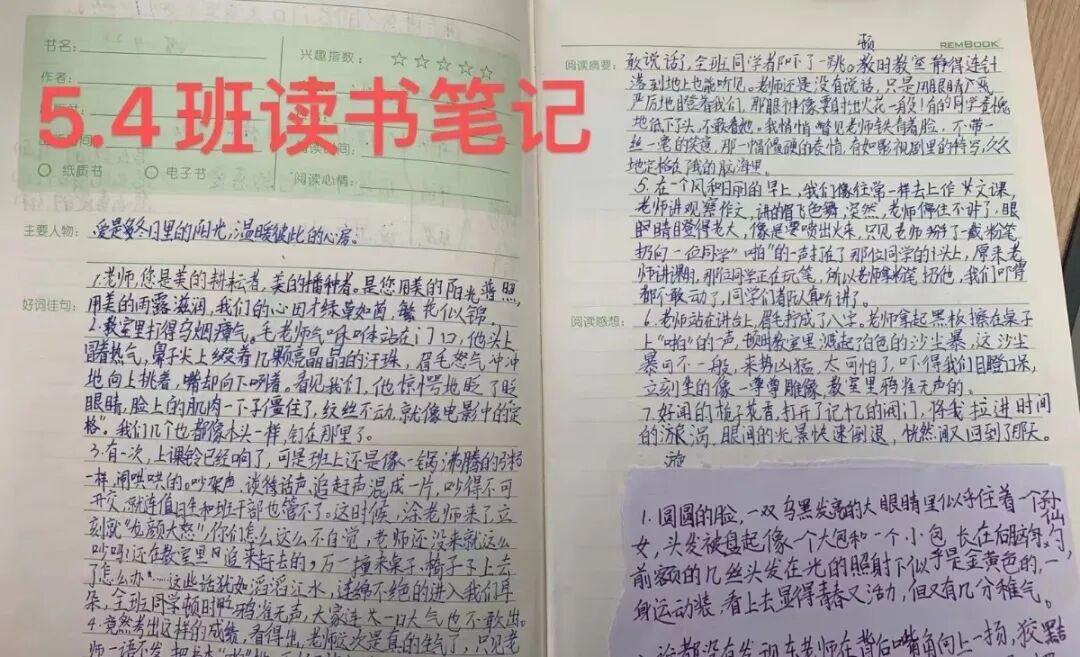 书名:
兴趣指数: ☆☆☆☆☆
作者:
5.4班读书笔记
阅读时间:
○ 纸质书 ○ 电子书
阅读心情:
主要人物: 爱是冬日里的阳光,温暖彼此的心房。
1.老师,您是美的耕耘者,美的播种者。是您用美的阳光普照,
好词佳句: 用美的雨露滋润,我们的心田才绿草如茵,繁花似锦。
2.教室里打得乌烟瘴气。毛老师气咻咻站在门口,他头上
冒着热气,鼻子尖上缀着几颗亮晶晶的汗珠,眉毛怒气冲冲
地向上挑着,嘴却向下咧着。看见我们,他惊愕地眨了眨
眼睛,脸上的肌肉一下子僵住了,纹丝不动,就像电影中的定
格。我们几个也都像木头一样,钉在那里了。
3.有一次,上课铃已经响了,可是班上还是像一锅沸腾的粥
一样,闹哄哄的。吵架声、谈话声、追赶声混成一片,吵得不可
开交,就连值日生和班干部也管不了。这时候,涂老师来了立
刻就"龙颜大怒",你们怎么这么不自觉,老师还没来就这么
吵吗?还在教室里追来赶去的,万一撞来桌子、椅子子上去
了怎么办"……这些话犹如滔滔江水,连绵不绝的进入我们耳
朵,全班同学顿时鸦雀无声,大家连大一口大气也不敢出。
4.竟然考出这样的成绩,看得出,老师这次是真的生气了,只见老
师一语不发,把书本"啪"地
REMBOOK
顿
阅读摘要: 敢说话了,全班同学都吓了一跳。教时教室静得连针
落到地上也能听见。老师还是没有说话,只是用眼睛严
严厉地瞪着我们,那眼神像要射出火花一般!有的同学羞愧
地低下了头,不敢看她。我悄悄瞥见老师铁青着脸,不带一
丝一毫的笑意,那一幅僵硬的表情,有如影视剧里的特写,久久
地定格在我的脑海里。
5.在一个风和日丽的早上,我们像往常一样去上作文课,
老师讲观察作文,讲的眉飞色舞,突然,老师停住不讲了,眼
睛瞪得老大,像是要喷出火来,只见老师掰了一截粉笔
扔向一位同学"啪"的一声打在了那位同学的头上,原来老
师讲课时,那位同学正在玩笔,所以老师拿粉笔扔他,我们吓得
都不敢动了,同学们都认真听讲了。
阅读感想: 6.老师站在讲台上,眉毛拧成了八字。老师拿起黑板擦在桌子
上"啪"的一声,顿时教室里溅起了白色的沙尘暴,这沙尘
暴可不一般,来势凶猛,太可怕了,吓得我们目瞪口呆,
立刻坐的像一尊尊雕像,教室里鸦雀无声的。
7.好闻的栀子花香,打开了记忆的闸门,将我拉进时间
的漩涡,眼间的光景快速倒退,恍然间又回到了那天。
漩
1.圆圆的脸,一双乌黑发亮的大眼睛里似乎住着一个小仙
女,头发被盘起像一个大包和一个小包,长在胸前,
前额的几丝头发在光的照射下似乎是金黄色的,一
身运动装,看上去显得青春又活力,但又有几分稚气。
谁都没有发现车老师在背后嘴角向上一扬,狡黠